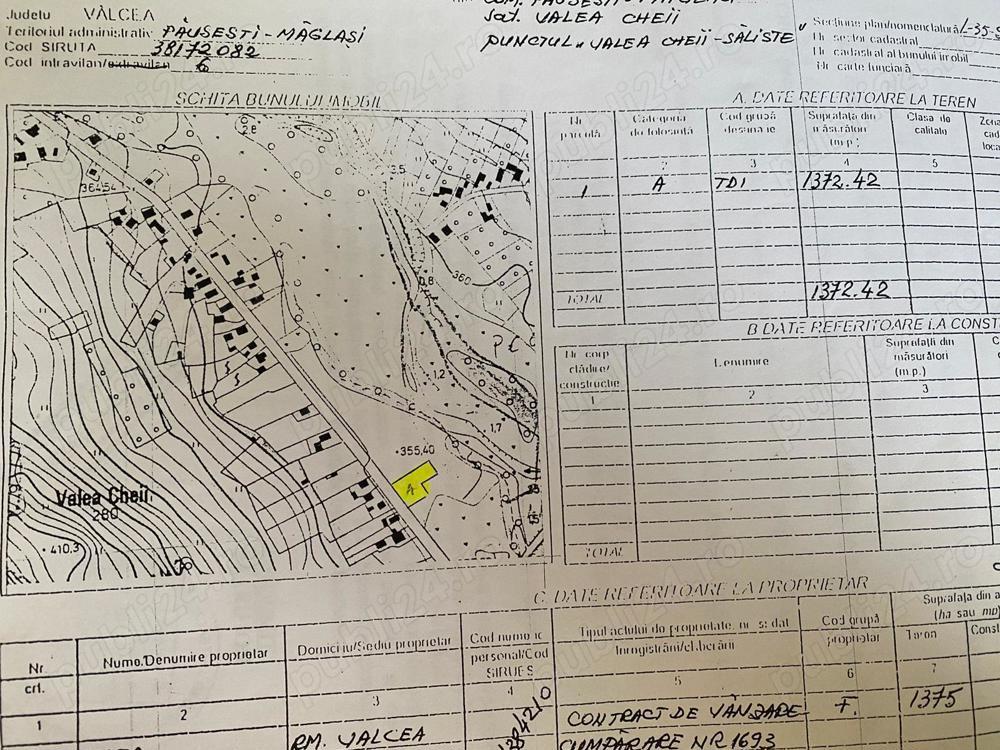 Județu VÂLCEA
Teritoriul administrativ PĂUSEȘTI-MĂGLAȘI
Cod SIRUTA 38172082
Cod intravilan/extravilan 6
COM.
Sat. VALEA CHEII
PUNCTUL „VALEA CHEII-SĂLISTE"
Secțiune plan/nomenclatură L-35-
Nr sector cadastral
Nr cadastral al bunului imobil
Nr carte funciară
SCHIȚA BUNULUI IMOBIL
2,8
364,54
3,5
360
0,8
PC
1,2
1,7
355,40
A
Valea Cheii
280
410,3
A. DATE REFERITOARE LA TEREN
Nr parcelă
Categoria de folosință
Cod grupă destinație
Suprafața din măsurători (m.p.)
Clasa de calitate
Zona
2 3 4 5
1 A TDI 1372.42
TOTAL 1372.42
B DATE REFERITOARE LA CONST
Nr corp clădire/ construcție
Denumire
Suprafață din măsurători (m.p.)
1 2 3
TOTAL
C. DATE REFERITOARE LA PROPRIETAR
Nr. crt.
Nume/Denumire proprietar
Domiciliu/Sediu proprietar
Cod numeric personal/Cod SIRUES
Tipul actului de proprietate, nr. și dat
înregistrării/eliberării
Cod grupă proprietar
Suprafața din a
(ha sau mp)
Teren
Const
2 3 4 5 6 7
1 RM. VALCEA
CONTRACT DE VÂNZARE-
CUMPĂRARE NR 1693
F.
1375
publi24.ro